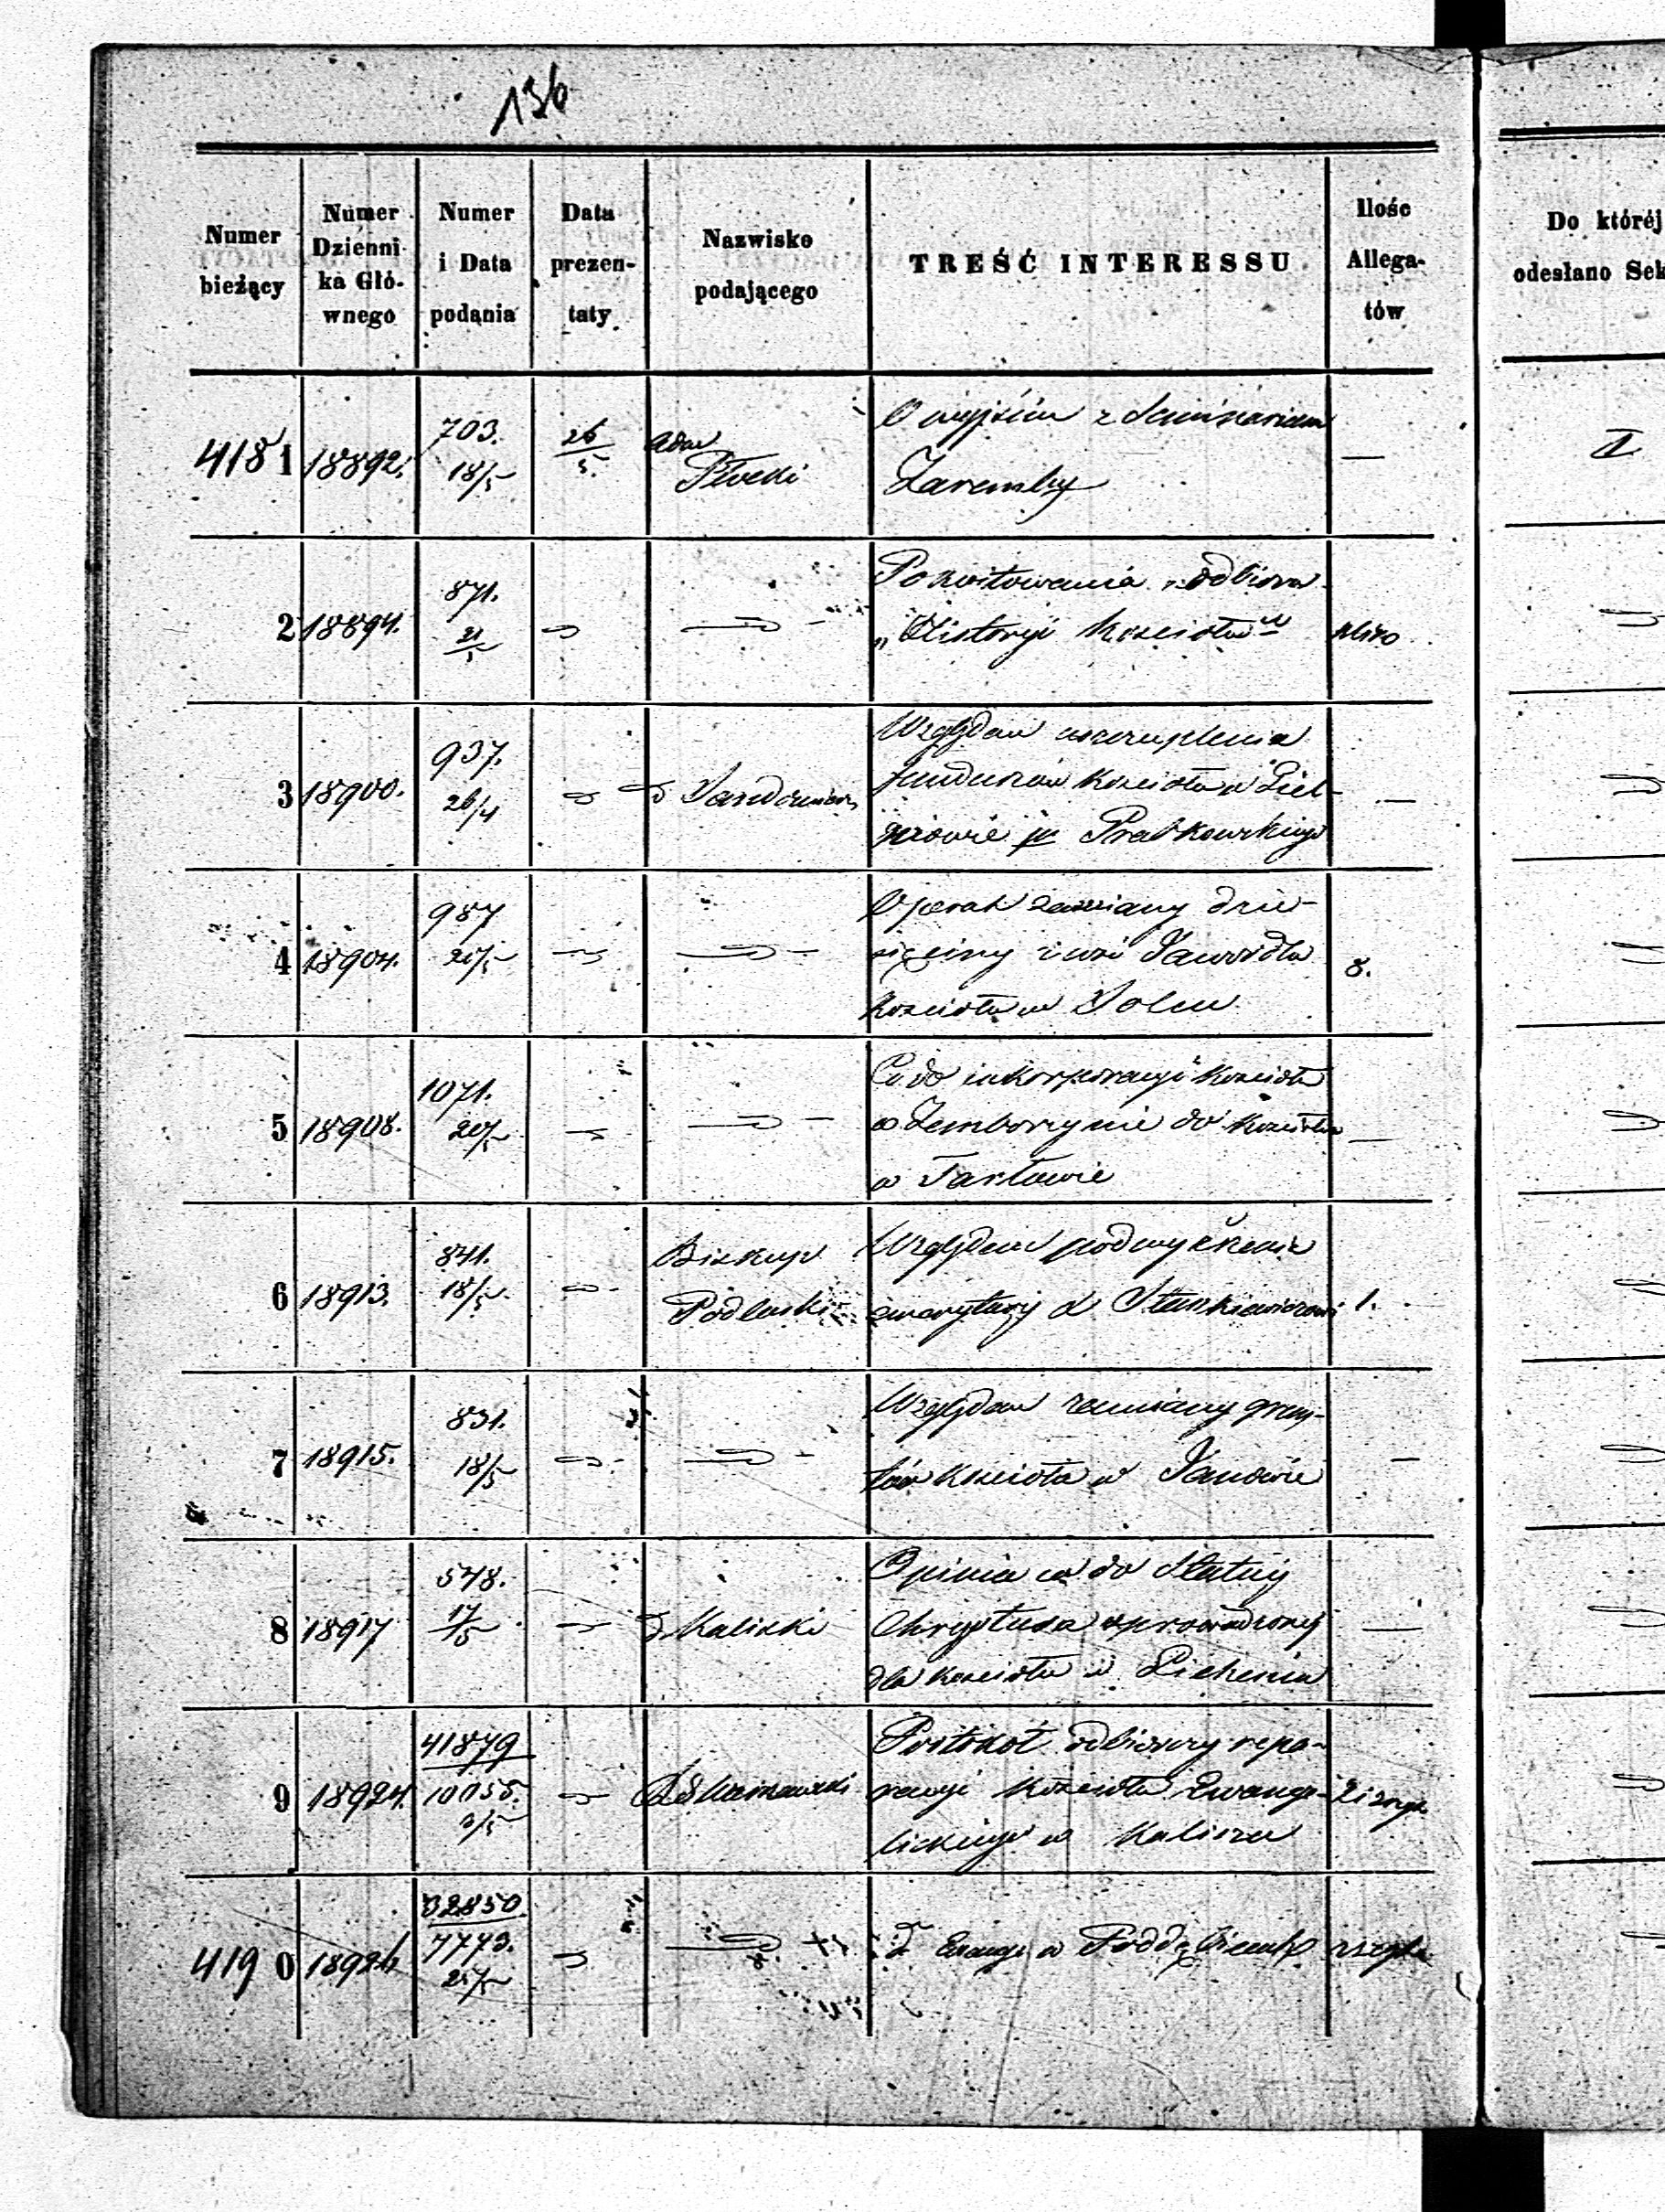 136
Numer bieżący
Numer Dzienni- ka Głó- wnego
Numer i Data podania
Data prezen- taty
Nazwisko podającego
TREŚĆ INTERESSU
Ilośc Allega- tów
Do któréj odesłano Sek
4181 18892. 703. 18/5 26/5 Płocki
O wyjściu z Seminarium
Zaremby — II
2 18894. 871. 21/5
Pokwitowania odbioru
„Historyi Kościoła"
3 18900. 937. 26/4 Sandomiers
Względem uszczuplenia
funduszów Kościoła w Giel-
niowie Pratkowskiego —
4 18904. 987 20/5
zamiany dzie-
sięciny z wsi
Kościoła w Solcu 8.
5 18908. 1071. 20/5
Co do inkorporacyi Kościoła
w Zemborzynie do Kościoła
w Tarłowie —
6 18913. 841. 18/5 Biskup Podlaski
Względem podwyższenia
emerytury 1.
7 18915. 831. 18/5
Względem zamiany grun-
tów Kościoła w Janowie —
8 18917 578. 17/5 Kaliski
Opinia co do Statuy
Chrystusa sprowadzonej
dla Kościoła w Lichenia —
9 18924. 41879 10055. Warszawski
Protokół odbiorczy repa-
racyi Kościoła Ewange-
lickiego w Kaliszu
4190 18926 32850 7773. 25/5
Ewang. w Poddębicach